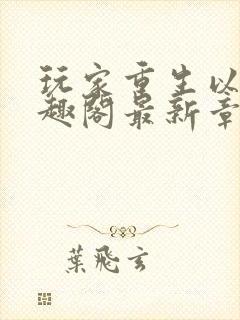 玩家重生以
趣阁最新章
葉飛玄